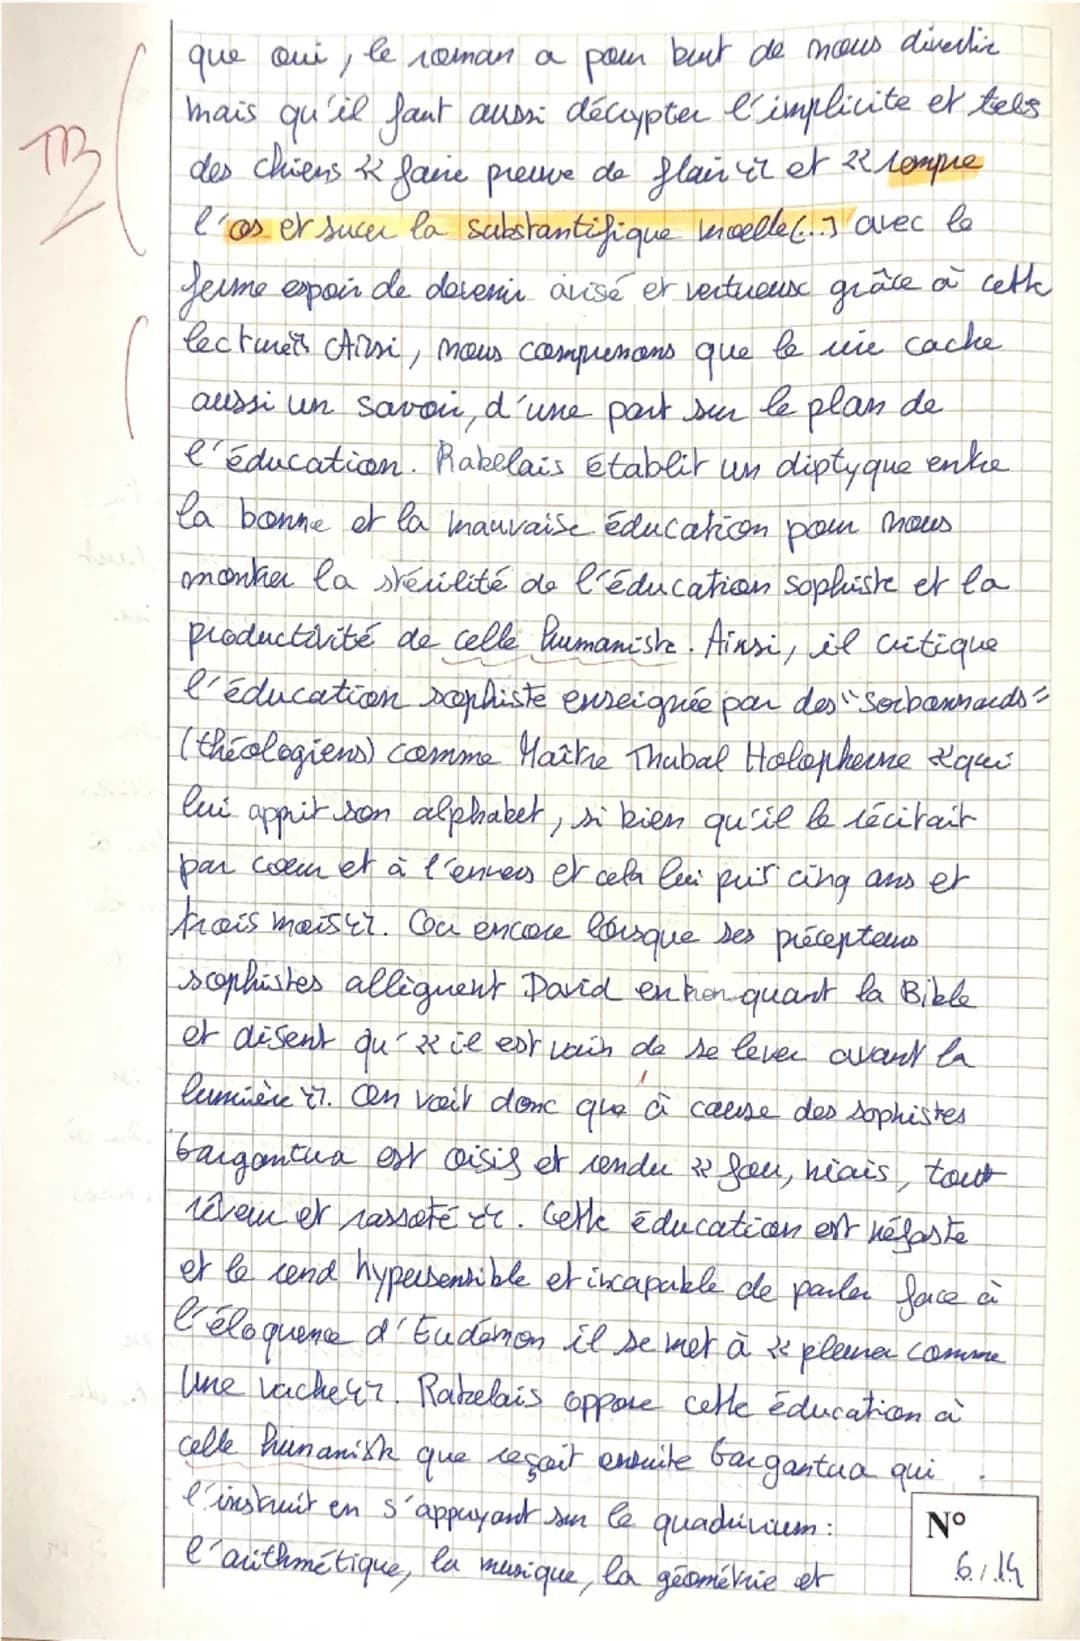 que oui, le roman a pour but de nous divertir
TB
mais qu'il faut aussi décrypter l'implicite et tels
des chiens « faire preuve de flair » et « rompre
l'os et sucer la substantifique moelle (...] avec le
ferme espoir de devenir avisé et vertueux grâce à cette
lecture ». Ainsi, nous comprenons que le rire cache
aussi un savoir, d'une part sur le plan de
l'éducation. Rabelais établit un diptyque entre
la bonne et la mauvaise éducation pour nous
montrer la stérilité de l'éducation sophiste et la
productivité de celle humaniste. Ainsi, il critique
l'éducation sophiste enseignée par des "Sorbonnards"
(théologiens) comme Maître Thubal Holopherne « qui
lui apprit son alphabet, si bien qu'il le récitait
par coeur et à l'envers et cela lui prit cinq ans et
trois mois ». Ou encore lorsque ses précepteurs
sophistes allèguent David en tronquant la Bible
et disent qu'« il est vain de se lever avant la
lumière ». On voit donc que à cause des sophistes
Gargantua est oisif et rendu « fou, niais, tout
rêveur et rassoté ». Cette éducation est néfaste
et le rend hypersensible et incapable de parler face à
l'éloquence d'Eudémon il se met à « pleurer comme
une vache ». Rabelais oppose cette éducation à
celle humaniste que reçoit ensuite Gargantua qui
l'instruit en s'appuyant sur le quadrivium :
l'arithmétique, la musique, la géométrie et
N°
6/14